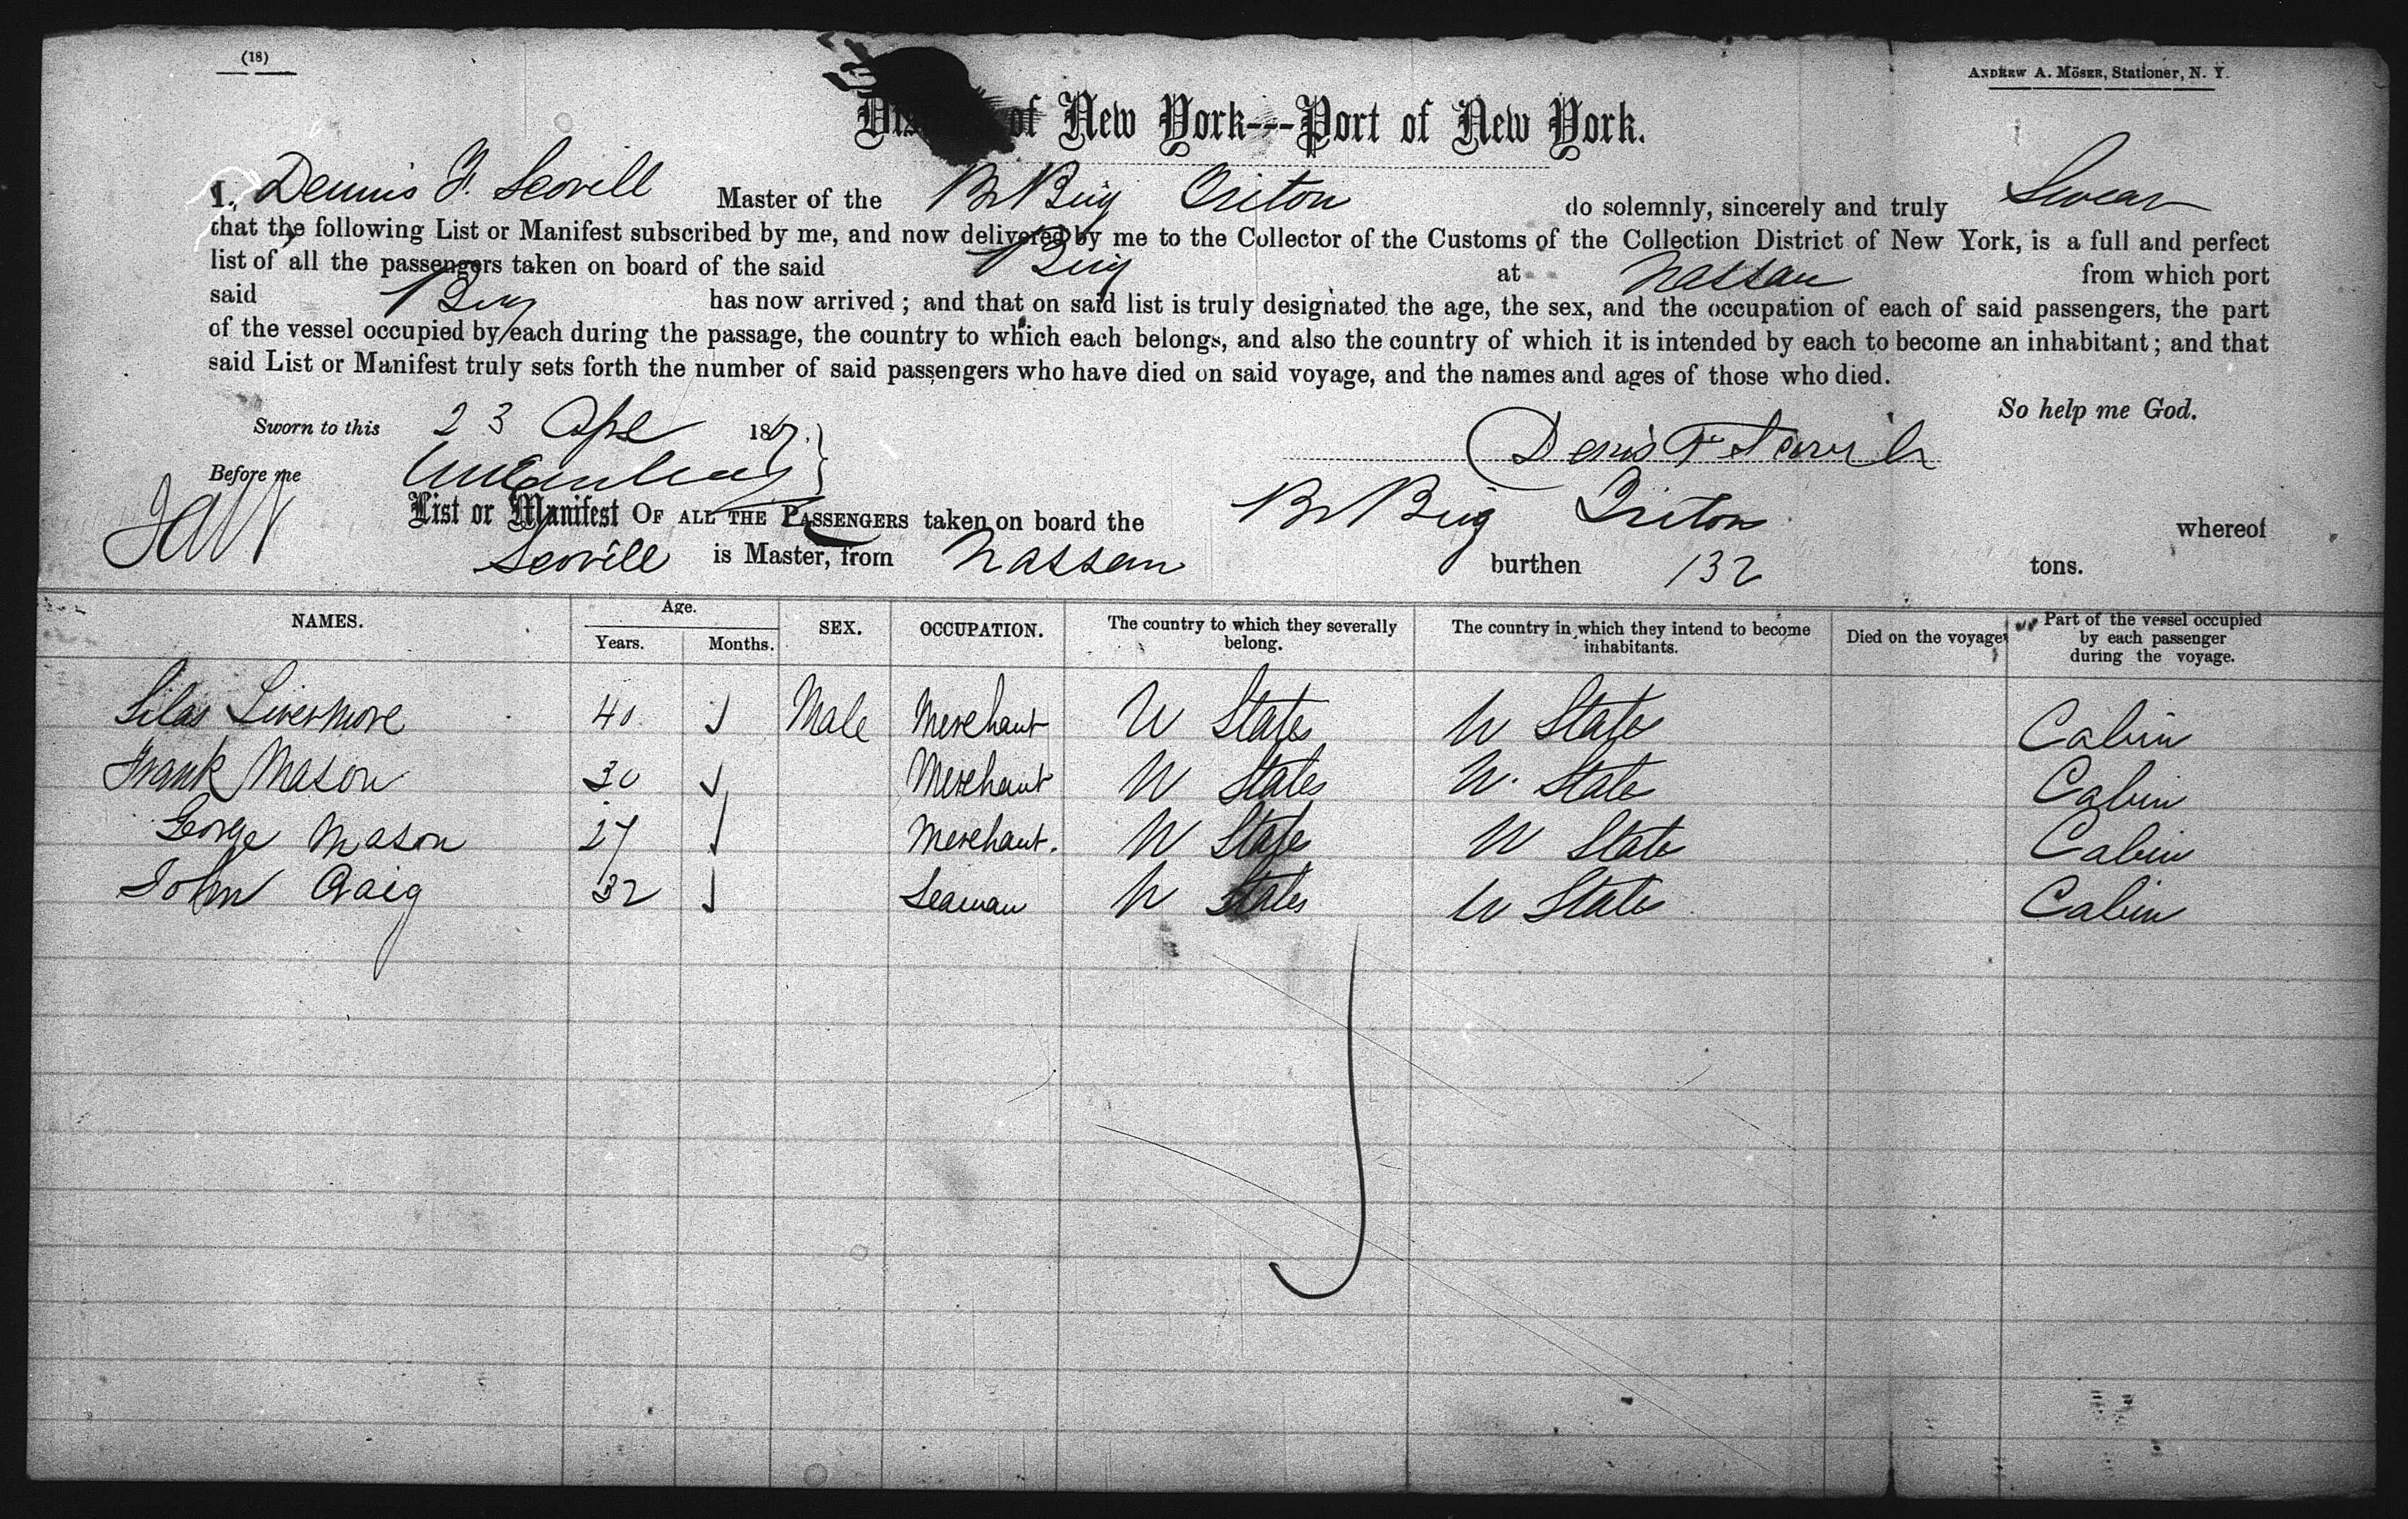 (18)
ANDREW A. MÖSER, Stationer, N. Y.
of New York---Port of New York.
I, Dennis F. Scovill Master of the Br Brig Triton do solemnly, sincerely and truly Swear
that the following List or Manifest subscribed by me, and now delivered by me to the Collector of the Customs of the Collection District of New York, is a full and perfect
list of all the passengers taken on board of the said Brig at Nassau from which port
said Brig has now arrived; and that on said list is truly designated the age, the sex, and the occupation of each of said passengers, the part
of the vessel occupied by each during the passage, the country to which each belongs, and also the country of which it is intended by each to become an inhabitant; and that
said List or Manifest truly sets forth the number of said passengers who have died on said voyage, and the names and ages of those who died.
So help me God.
Sworn to this 23 Apl 18
Before me
Denis F Scovill
List or Manifest OF ALL THE PASSENGERS taken on board the Br Brig Triton whereof
Scovill is Master, from Nassau burthen 132 tons.
NAMES. Age. Years. Months. SEX. OCCUPATION. The country to which they severally belong. The country in which they intend to become inhabitants. Died on the voyage Part of the vessel occupied by each passenger during the voyage.
Silas Livermore 40 Male Merchant U States U State Cabin
Frank Mason 30 Merchant U States U. State Cabin
George Mason 27 Merchant. U State U State Cabin
John Craig 32 Seaman U States U State Cabin